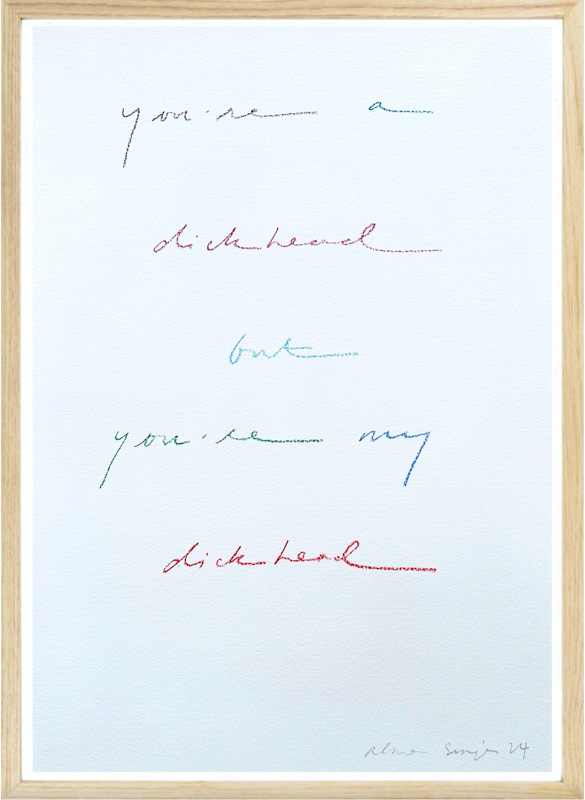 you're a
dickhead
but
you're my
dickhead
24